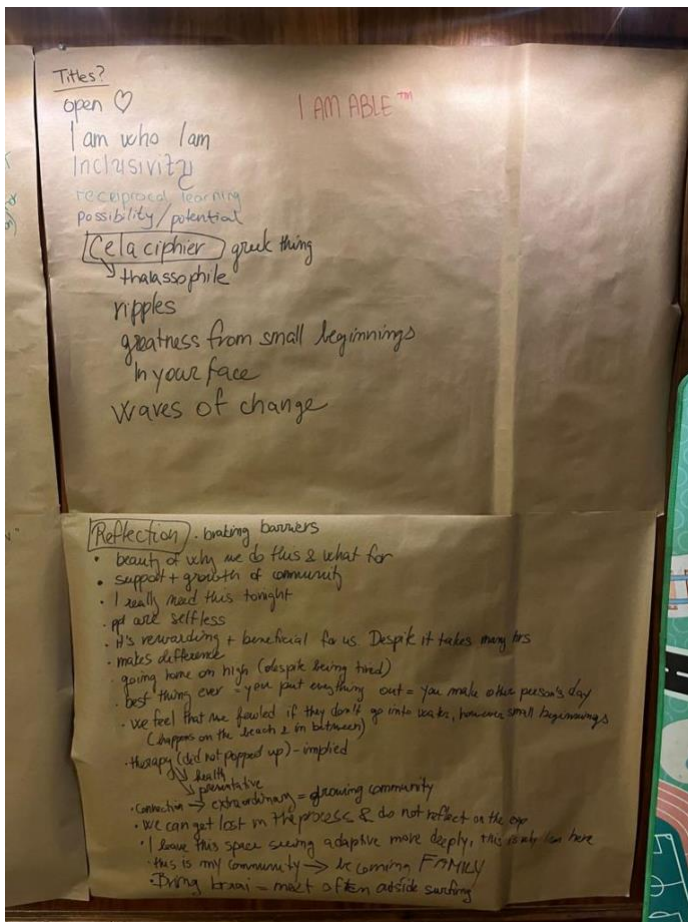 Titles?
open ♡
I AM ABLE™
I am who I am
Inclusivity
reciprocal learning
possibility/potential
Cela ciphier greek thing
thalassophile
ripples
greatness from small beginnings
In your face
waves of change
Reflection • braking barriers
• beauty of why we do this & what for
• support + growth of community
• I really need this tonight
• ppl are selfless
• it's rewarding + beneficial for us Despite it takes many hrs
• makes difference
• going home on high (despite being tired)
• best thing ever = you put everything out = you make other person's day
• we feel that we if they don't go into water, however small beginnings
(happens on the beach & in between)
• therapy (did not popped up) - implied
health
preventative
• Connection → extraordinary = growing community
• we can get lost in the process & do not reflect on the exp
• I leave this space seeing adaptive more deeply, this is why I am here
• this is my community → becoming FAMILY
• Bring braai = meet often outside surfing